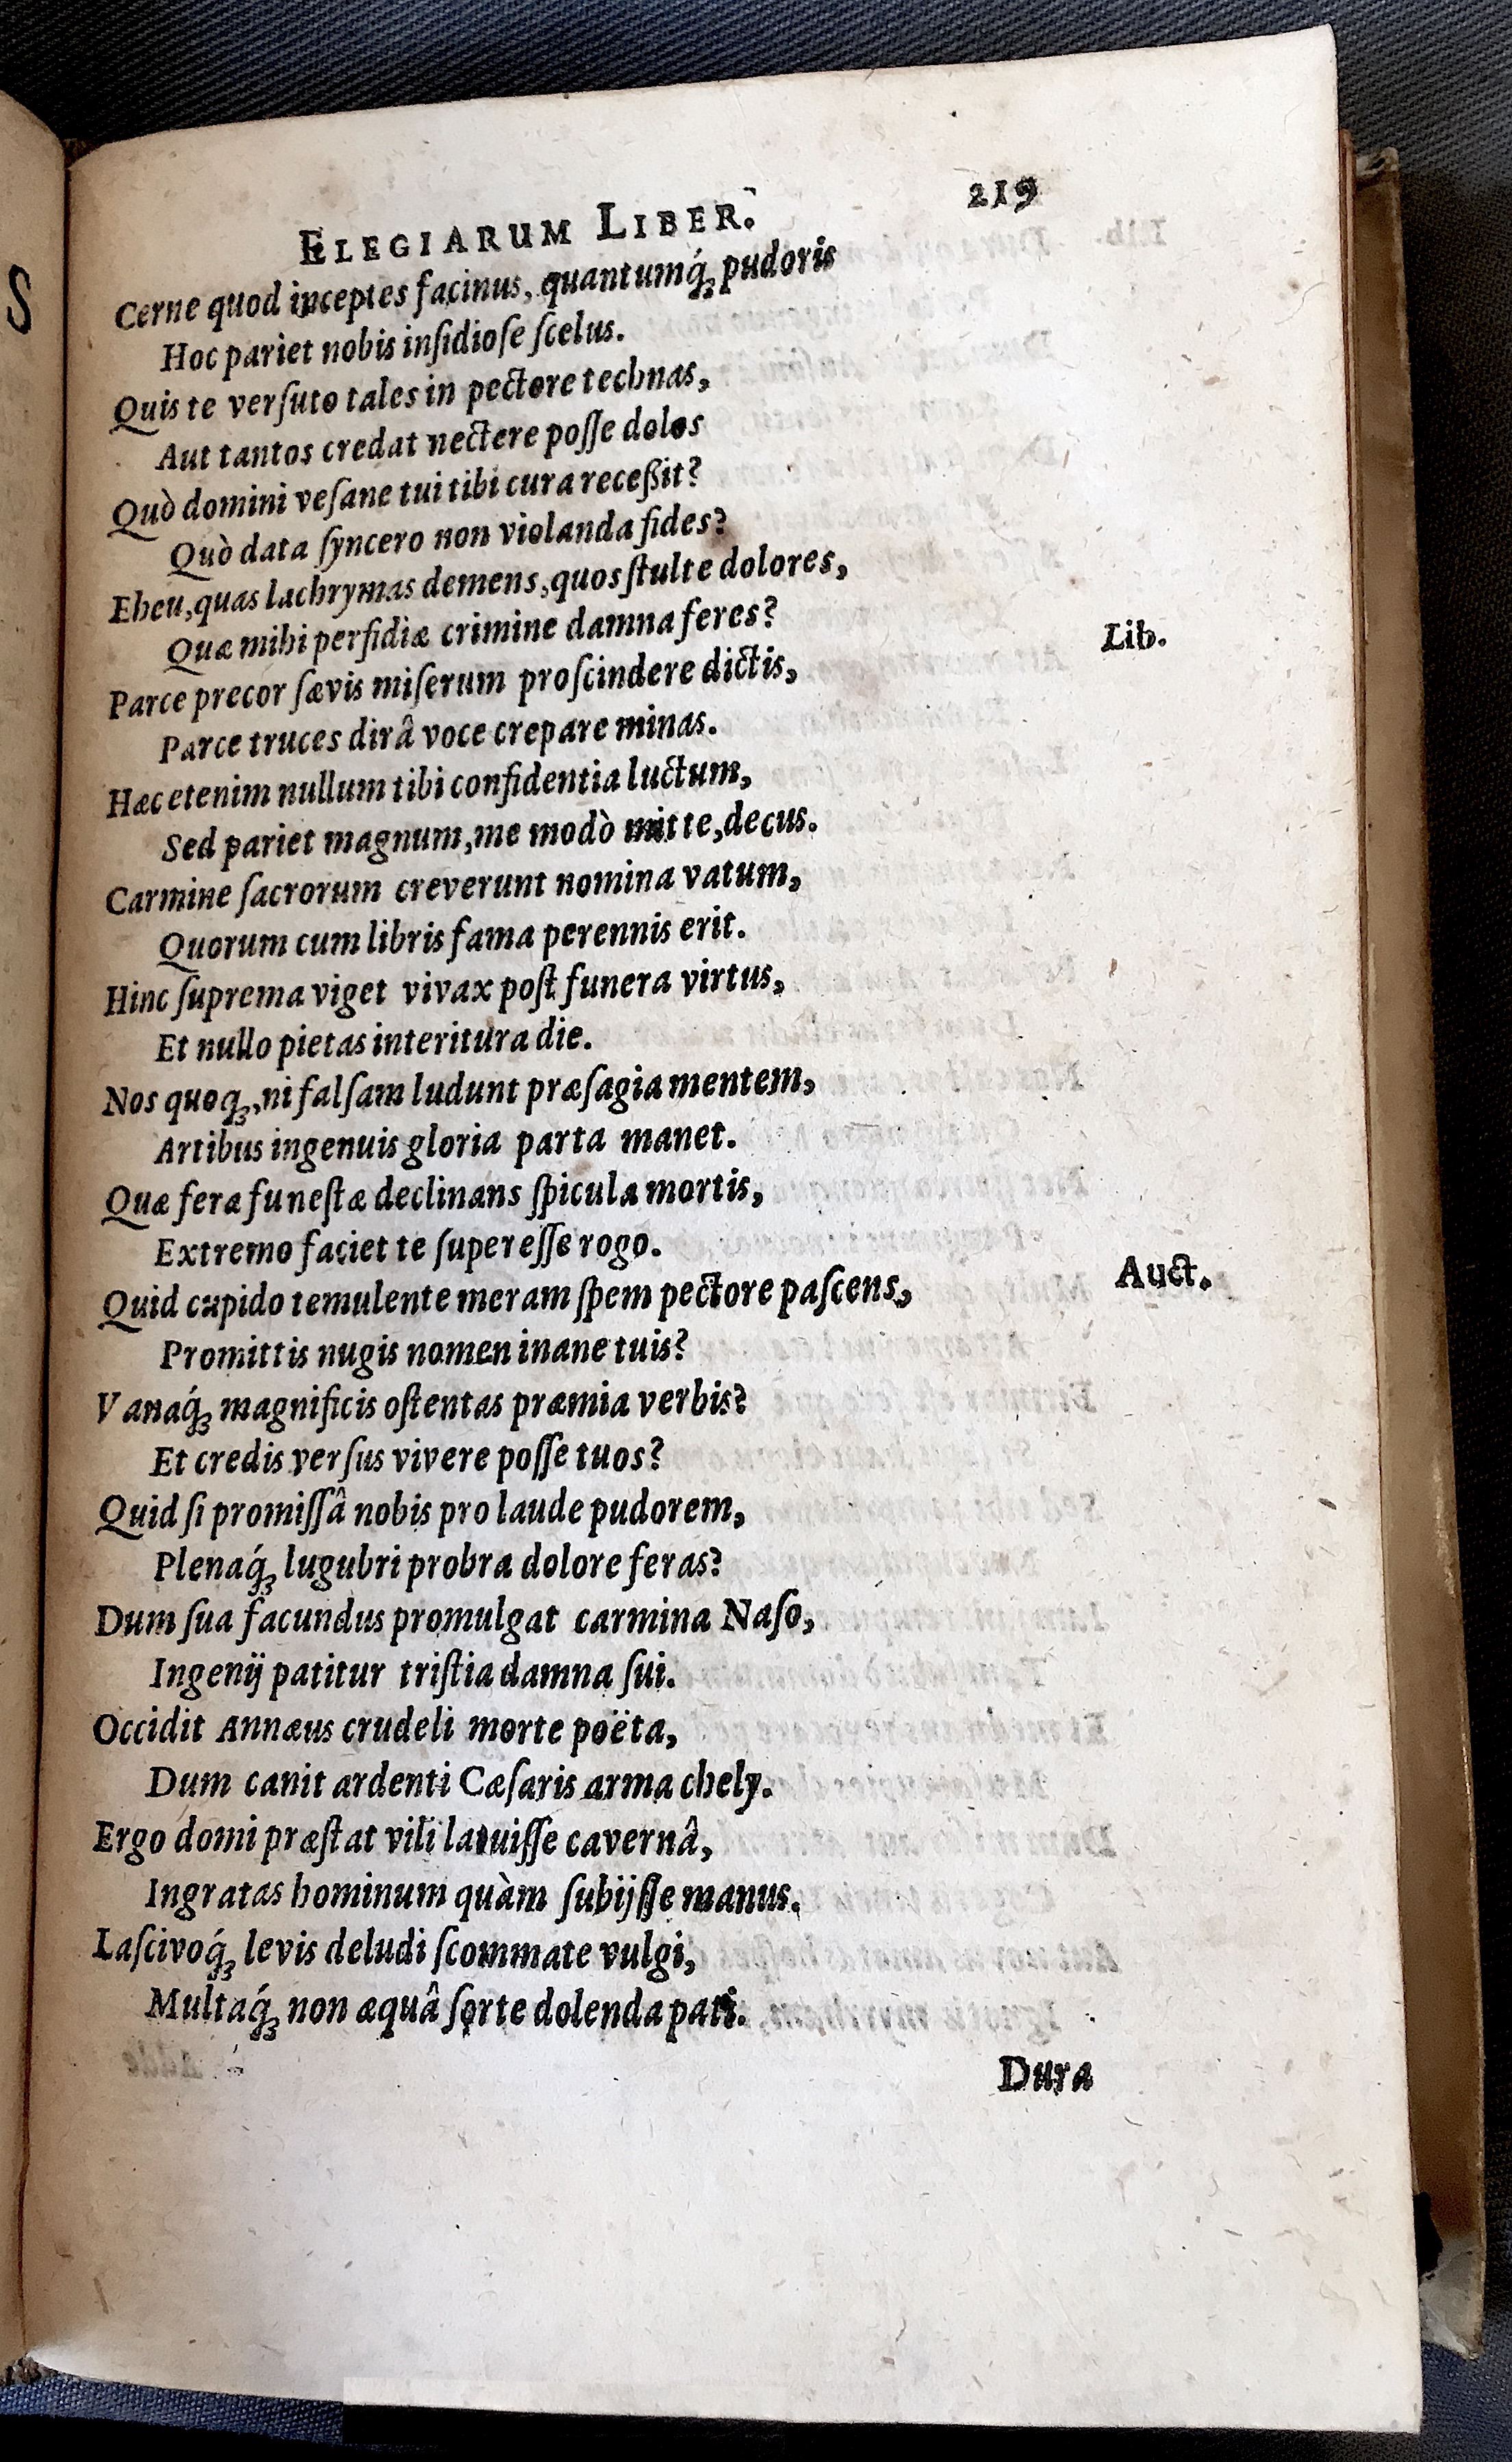 ELEGIARUM LIBER. 219
Cerne quod inceptes facinus, quantumq́ꝫ pudoris
Hoc pariet nobis inſidioſe ſcelus.
Quis te verſuto tales in pectore technas,
Aut tantos credat nectere poſſe dolos
Quò domini veſane tui tibi cura receßit?
Quò data ſyncero non violanda fides?
Eheu, quas lachrymas demens, quos ſtulte dolores,
Quæ mihi perfidiæ crimine damna feres?
Parce precor ſævis miſerum proſcindere dictis, Lib.
Parce truces dirâ voce crepare minas.
Hæc etenim nullum tibi confidentia luctum,
Sed pariet magnum, me modò mitte, decus.
Carmine ſacrorum creverunt nomina vatum,
Quorum cum libris fama perennis erit.
Hinc ſuprema viget vivax poſt funera virtus,
Et nullo pietas interitura die.
Nos quoqꝫ, ni falſam ludunt præſagia mentem,
Artibus ingenuis gloria parta manet.
Quæ fera funeſtæ declinans ſpicula mortis,
Extremo faciet te ſupereſſe rogo.
Quid cupido temulente meram ſpem pectore paſcens, Auct.
Promittis nugis nomen inane tuis?
Vanaq́ꝫ magnificis oſtentas præmia verbis?
Et credis verſus vivere poſſe tuos?
Quid ſi promiſſâ nobis pro laude pudorem,
Plenaq́ꝫ lugubri probra dolore feras?
Dum ſua facundus promulgat carmina Naſo,
Ingenij patitur triſtia damna ſui.
Occidit Annæus crudeli morte poëta,
Dum canit ardenti Cæſaris arma chely.
Ergo domi præſtat vili latuiſſe cavernâ,
Ingratas hominum quàm ſubijſſe manus.
Laſcivoq́ꝫ levis deludi ſcommate vulgi,
Multaq́ꝫ non æquâ ſorte dolenda pati.
Dura